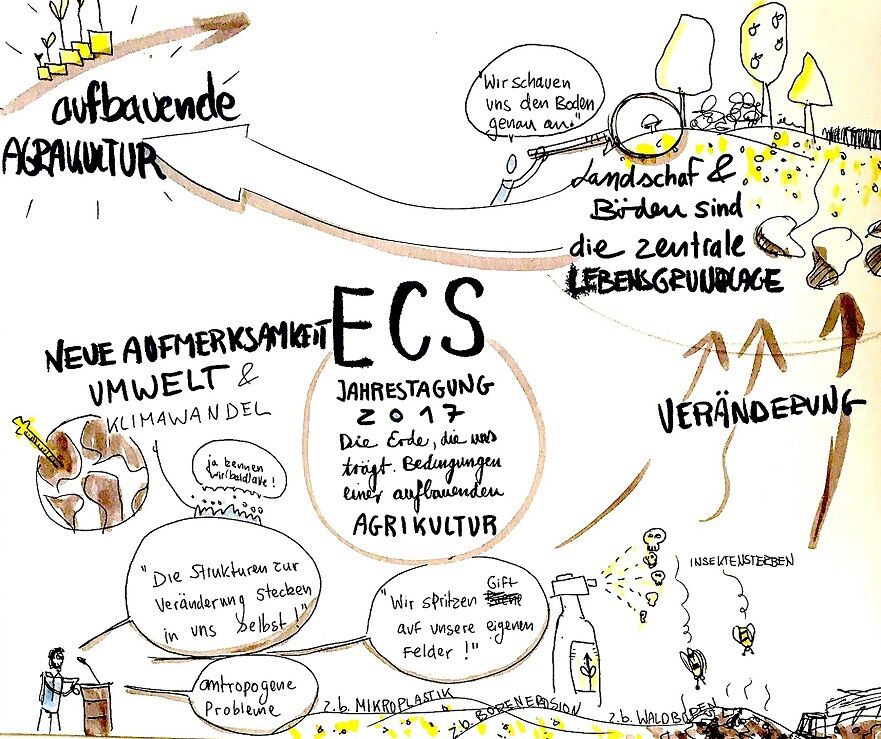 aufbauende
AGRAKULTUR
"Wir schauen
uns den Boden
genau an."
Landschaf &
Böden sind
die zentrale
LEBENSGRUNDLAGE
NEUE AUFMERKSAMKEIT
UMWELT &
KLIMAWANDEL
ECS
JAHRESTAGUNG
2017
Die Erde, die uns
trägt. Bedingungen
einer aufbauenden
AGRIKULTUR
VERÄNDERUNG
ja kennen
wir (bald) alle!
"Die Strukturen zur
Veränderung stecken
in uns selbst!"
"Wir spritzen Gift
auf unsere eigenen
Felder!"
INSEKTENSTERBEN
antropogene
Probleme
z.b. MIKROPLASTIK
z.b. BODENEROSION
z.b. WALDBODEN